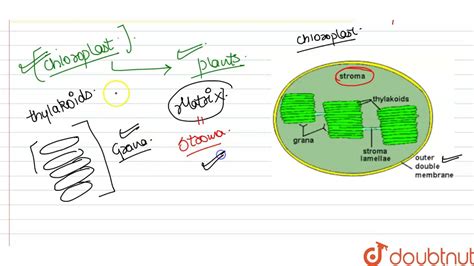 (chloroplast.)
plants.
thylakoids.
Matrix.
Grana.
Stroma.
chloroplast.
stroma
thylakoids
grana
stroma
lamellae
outer
double
membrane
doubtnut